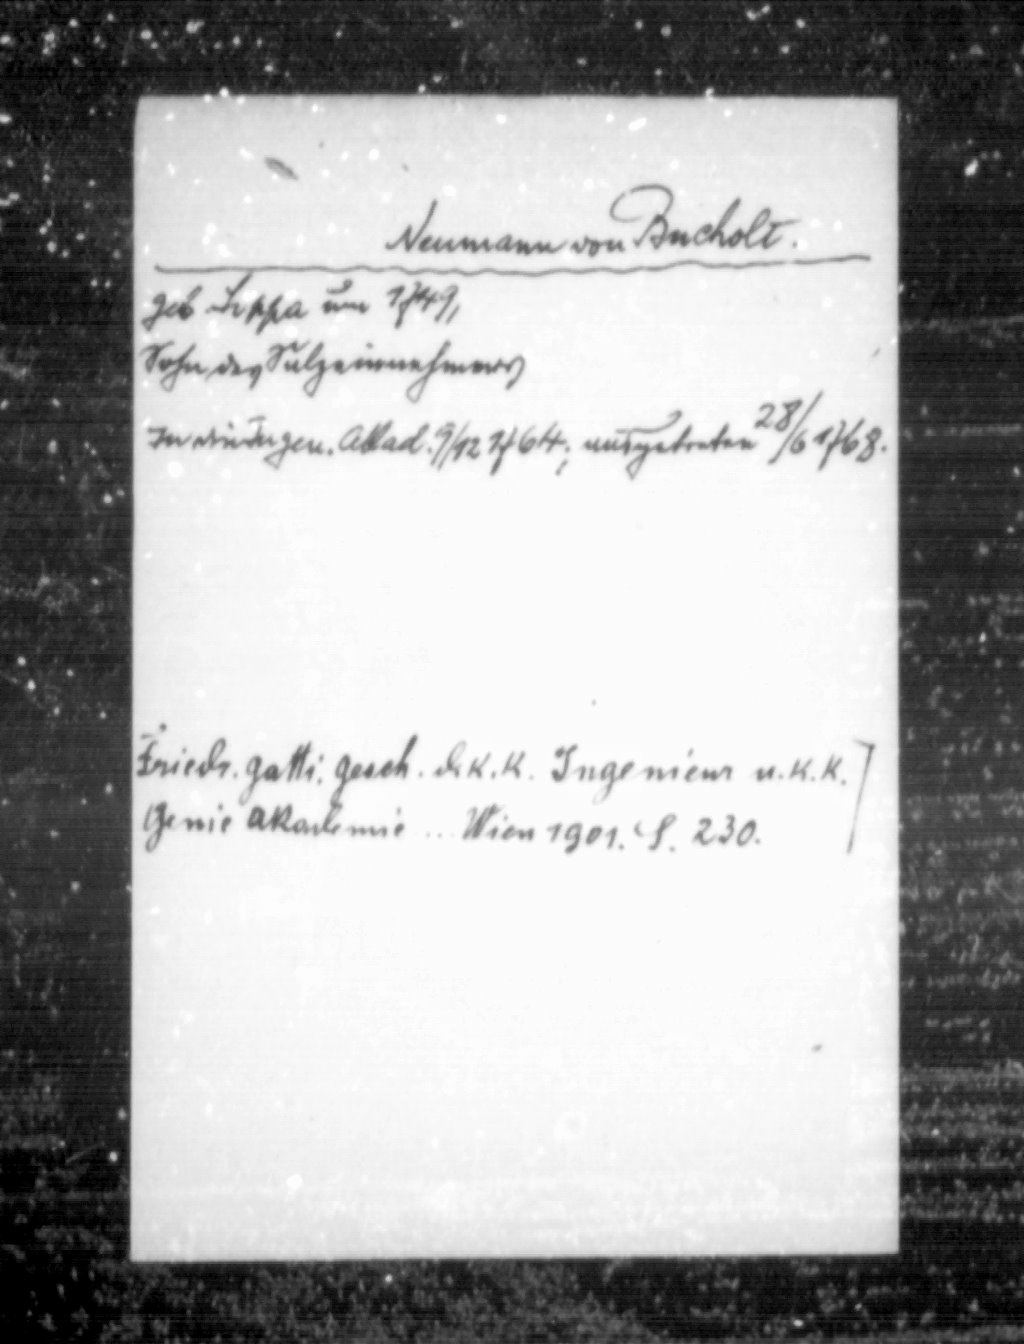 Neumann von Bucholt.
geb Leppa um 1749,
Sohn des Salzeinnehmers
In die Ingen. Akad. 9/12 1764; ausgetreten 28/6 1768.
Friedr. Gatti: Gesch. d. K. K. Ingenieur u. K. K.
Genie Akademie ... Wien 1901. S. 230.